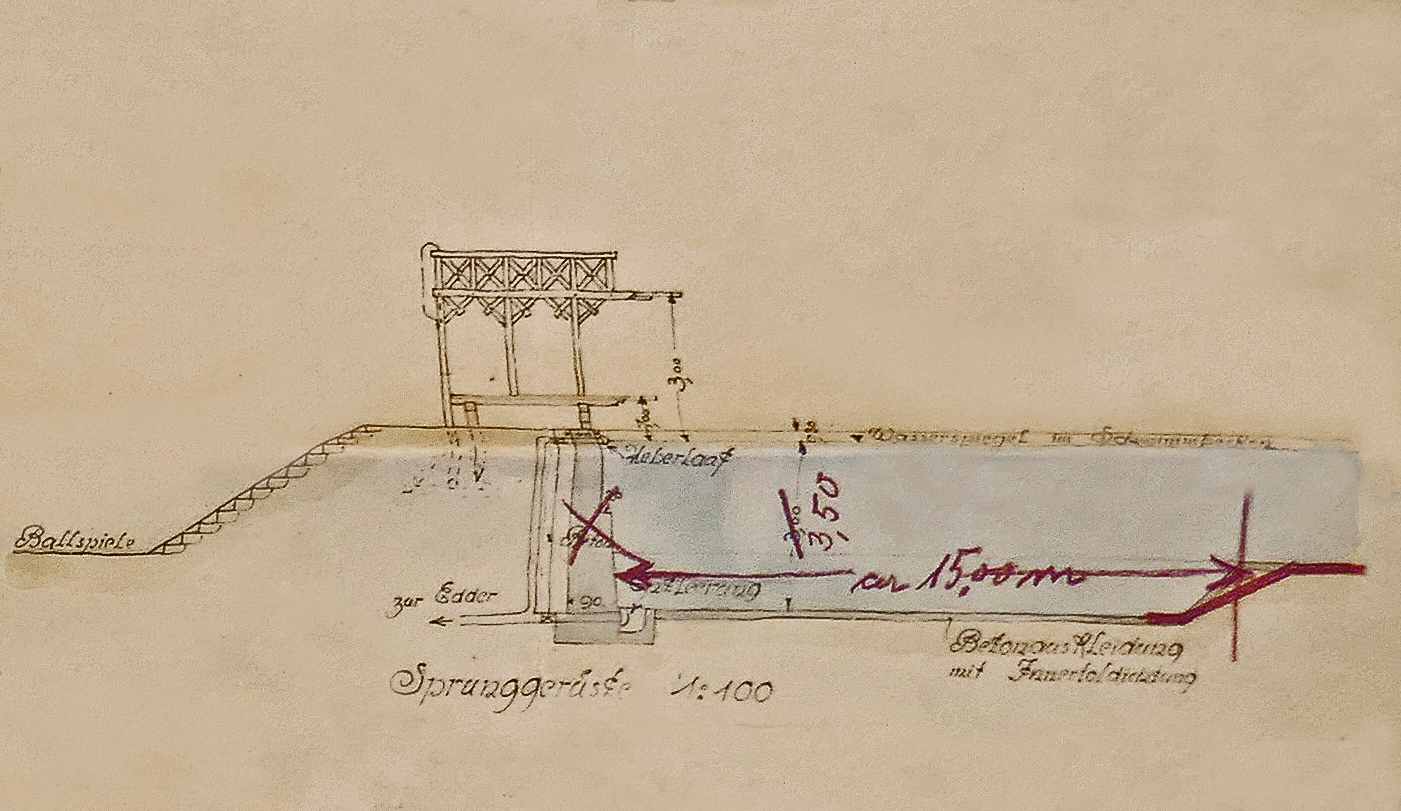 3,00
1,00
Wasserspiegel im Schwimmbecken
Ueberlauf
Ballspiele
3,50
Beton
ca 15,00 m
Entleerung
zur Edder
90
Betonauskleidung
mit Innertoldichtung
Sprunggerüste 1:100